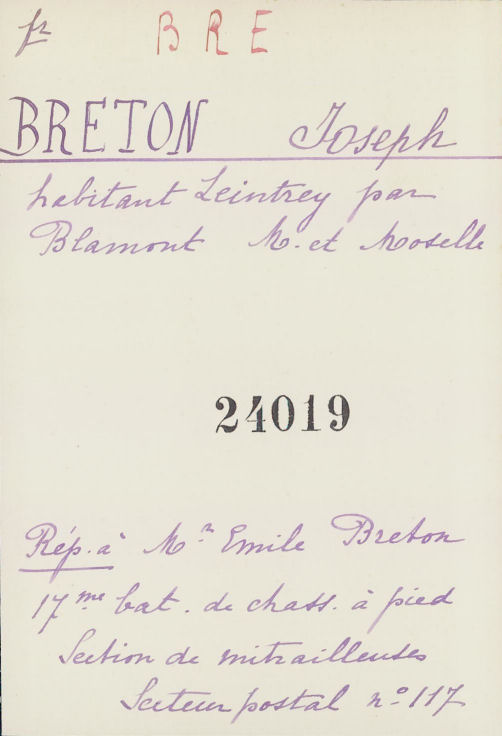 fr BRE
BRETON Joseph
habitant Leintrey par
Blamont M. et Moselle
24019
Rép. à Mr Emile Breton
17me bat. de chass. à pied
Section de mitrailleuses
Secteur postal no 117